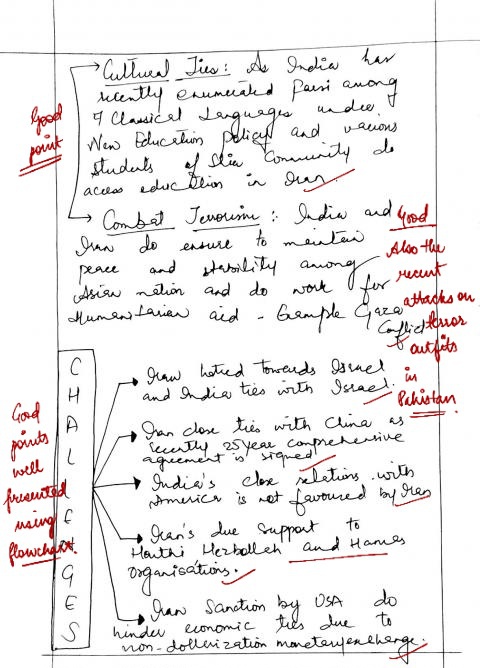 Cultural Ties: As India has
recently enumerated Parsi among
7 Classical Languages under
New Education policy and various
students of Shia Community do
access education in Iran.
Good
point
Combat Terrorism: India and
Iran do ensure to maintain
peace and stability among
Asian nation and do work for
Humanitarian aid - Example Gaza
Conflict
Good
Also the
recent
attacks on
terror
outfits
in
Pakistan.
CHALLENGES
Iran hatred towards Israel
and India ties with Israel.
Iran close ties with China as
recently 25 year comprehensive
agreement is signed
India's close relations with
America is not favoured by Iran
Iran's due support to
Houthi Hezbollah and Hamas
organisations.
Iran Sanction by USA do
hinder economic ties due to
non-dollerization monetary exchange.
Good
points
well
presented
using
flowchart.